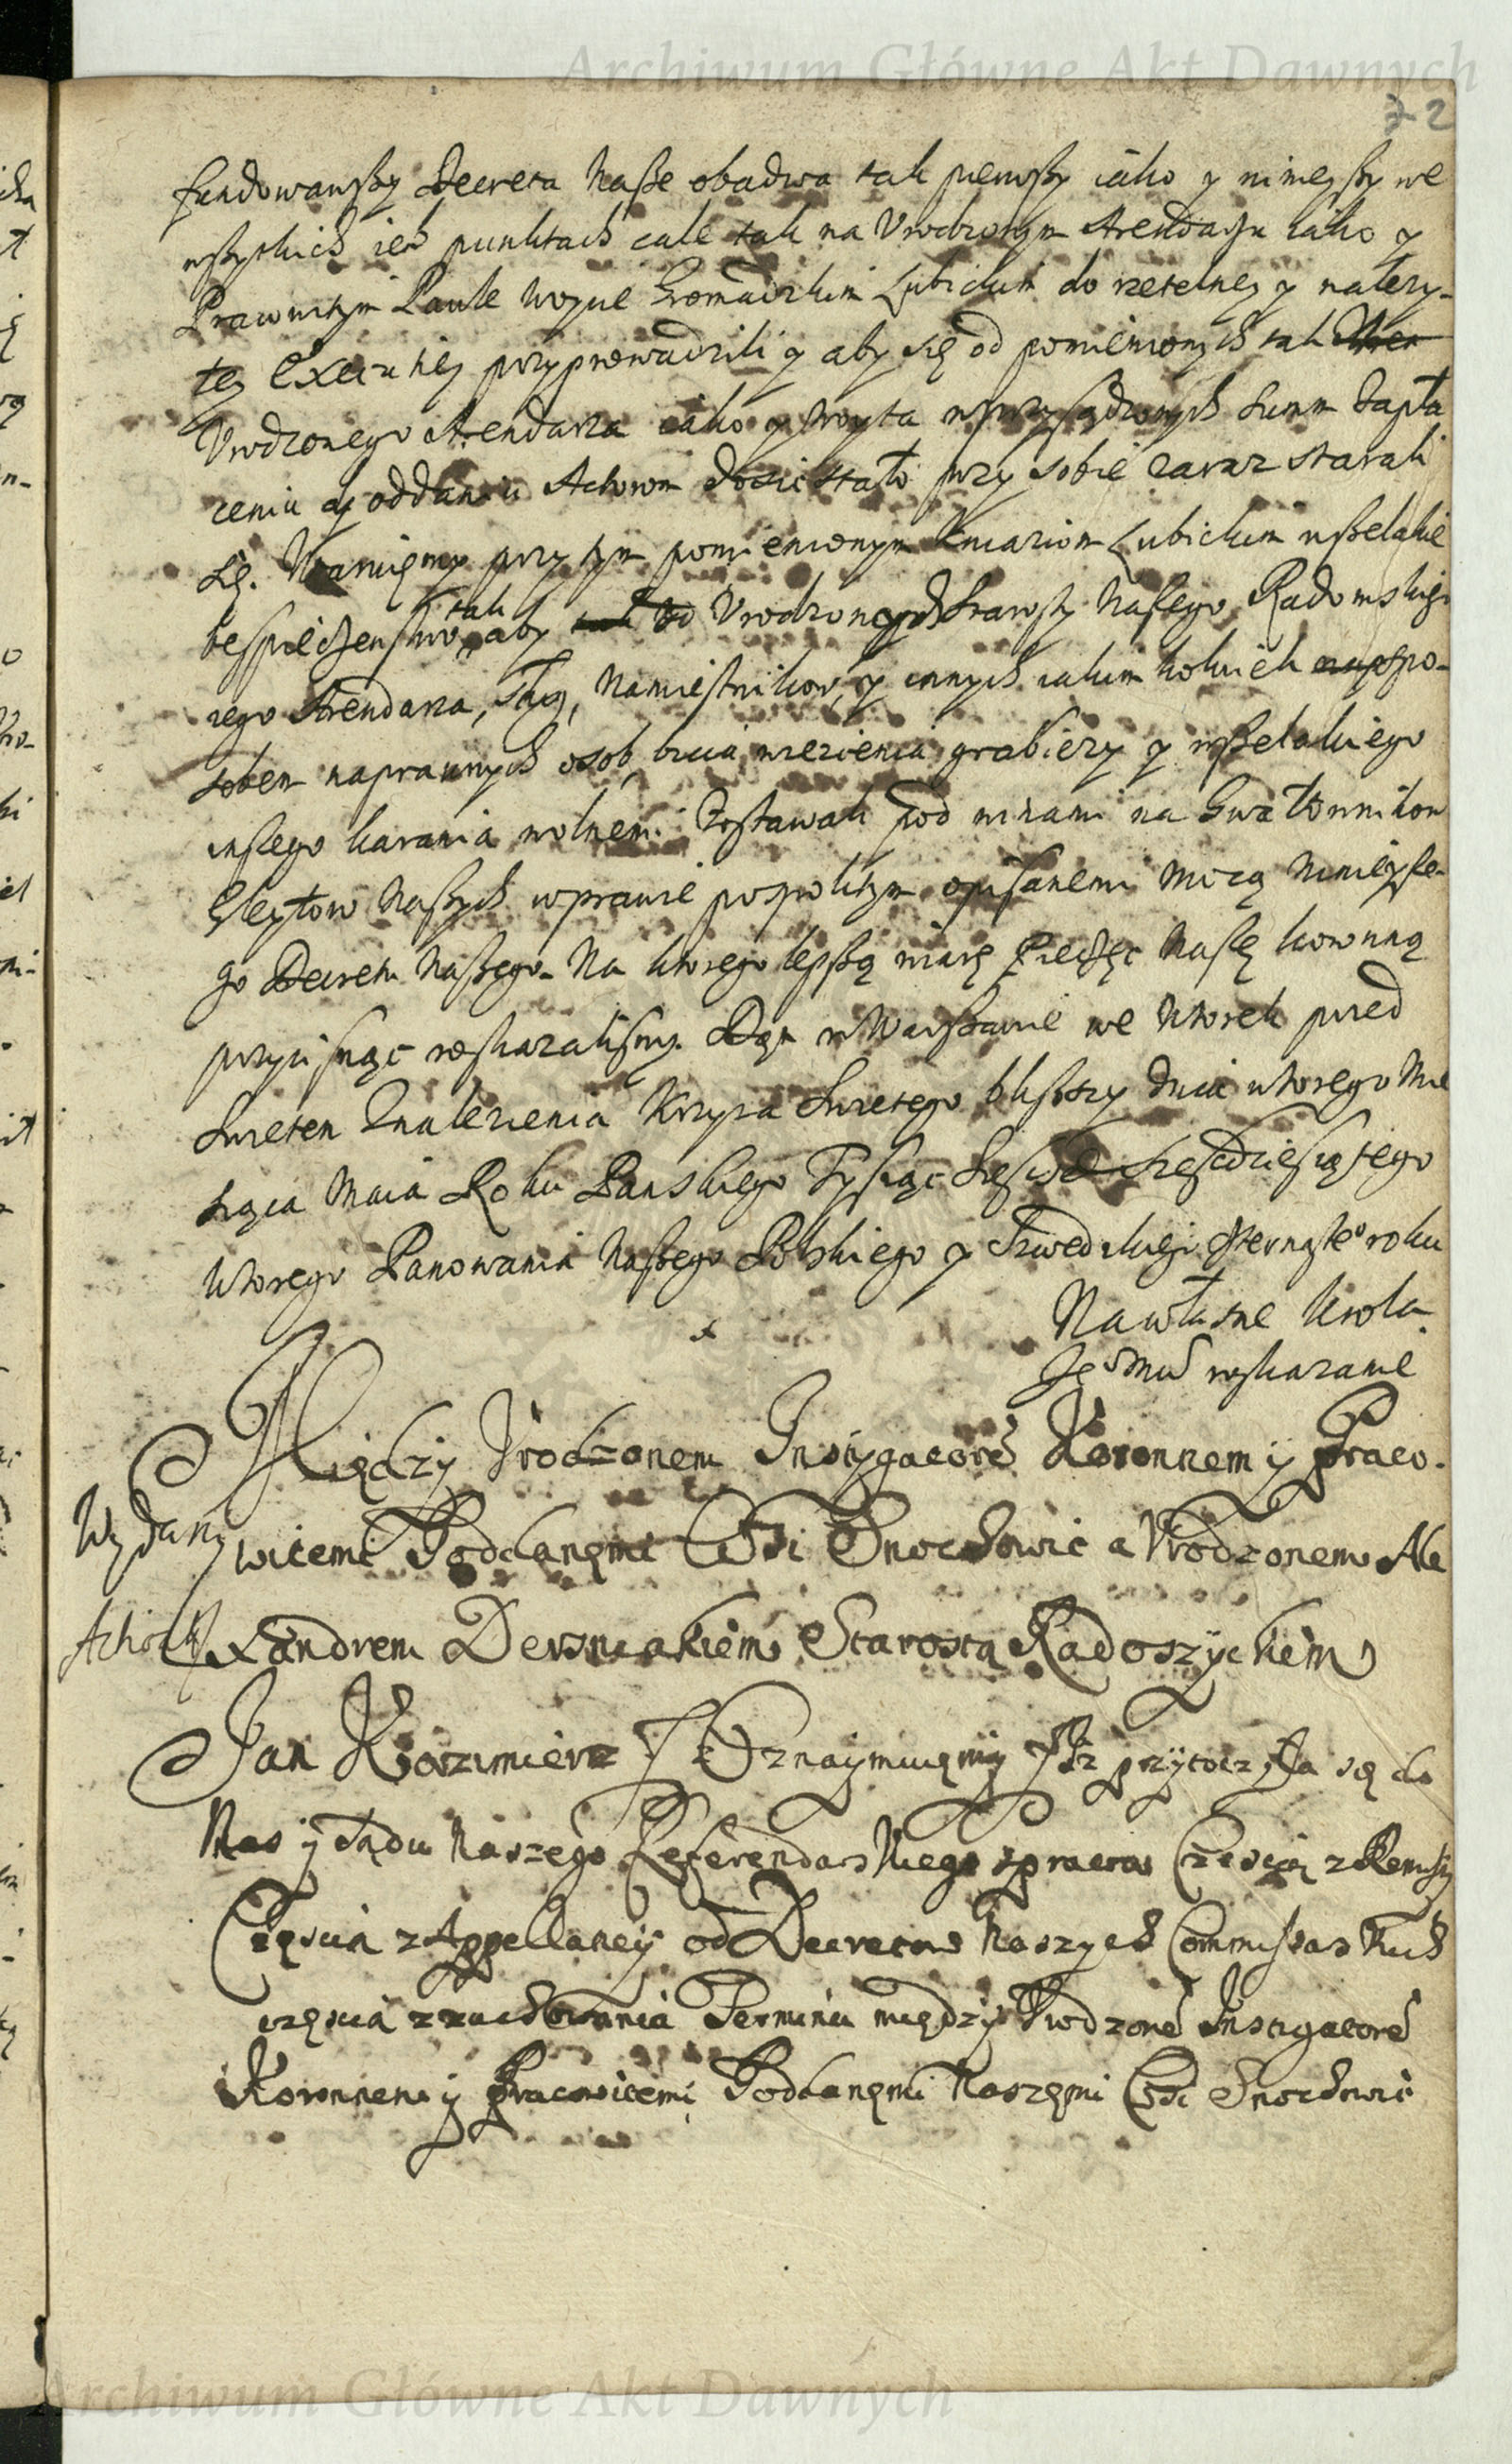 Archiwum Główne Akt Dawnych
72
fundowawszy Decreta Nasze obadwa tak pierwszy iako y ninieyszy we
wszytkich ich punktach cale tak na Vrodzonym Arendarzu iako y
Pracowitym Pawle Woycie Gromadzkim Lubickim do rzetelney y nalezy-
tey Exequtiey przyprowadzili y aby się od pomienionych tak
Vrodzonego Arendarza iako y Woyta wyzysądzonych Summ Zapła
ceniu y oddaniu Actorom dosić stało przy sobie zaraz starali
się. Waruięmy przy tym pomienionym Kmiciom Lubickim wszelakie
bespieczenstwo, aby tak od Vrodzonych Starosty Naszego Radomskiego
iego Arendarza, sług, Namiestnikow, y innych iakim kolwiek spo-
sobem naprawnych osob, bicia więzienia grabiezy y wszelakiego
inszego karania wolnemi Zostawali pod winami na Gwałtownikow
Gleytow Naszych w prawie pospolitym opisanemi mocą Ninieysze-
go Decretu Naszego. Na ktorego lepszą wiarę Pieczęc Naszę koronną
przycisnąc roskazalismy. Dan w Warszawie we Wtorek przed
Swietem Znalezienia Krzyza Swietego blisszy dnia wtorego Mie
siąca Maia Roku Panskiego Tysiąc Sześcset Sześćdziesiątego
wtorego Panowania Naszego Polskiego y Szwedzkiego czternastego roku
Na własne Krola
Jeo Mci roskazanie
Między Vrodzonem Instygatore Koronnem y Praco-
Wydany
wicemi Poddanęmi Wsi Snochowic a Vrodzonem Ale
Actorom
xandrem Dersniakiem Starostą Radoszyckiem
Jan Kazimierz Oznaymuięmy Isz przytoczyła się do
Nas y Sądu Naszego Referendarskiego sprawa Częscią z Remissy
Częscia z Appellaciey od Decretow Naszych Commissarskich
częscia z zachowania Terminu między Vrodzone Instigatore
Koronnem y Pracowicemi Poddanęmi Naszęmi Wsi Snochowic
Archiwum Główne Akt Dawnych